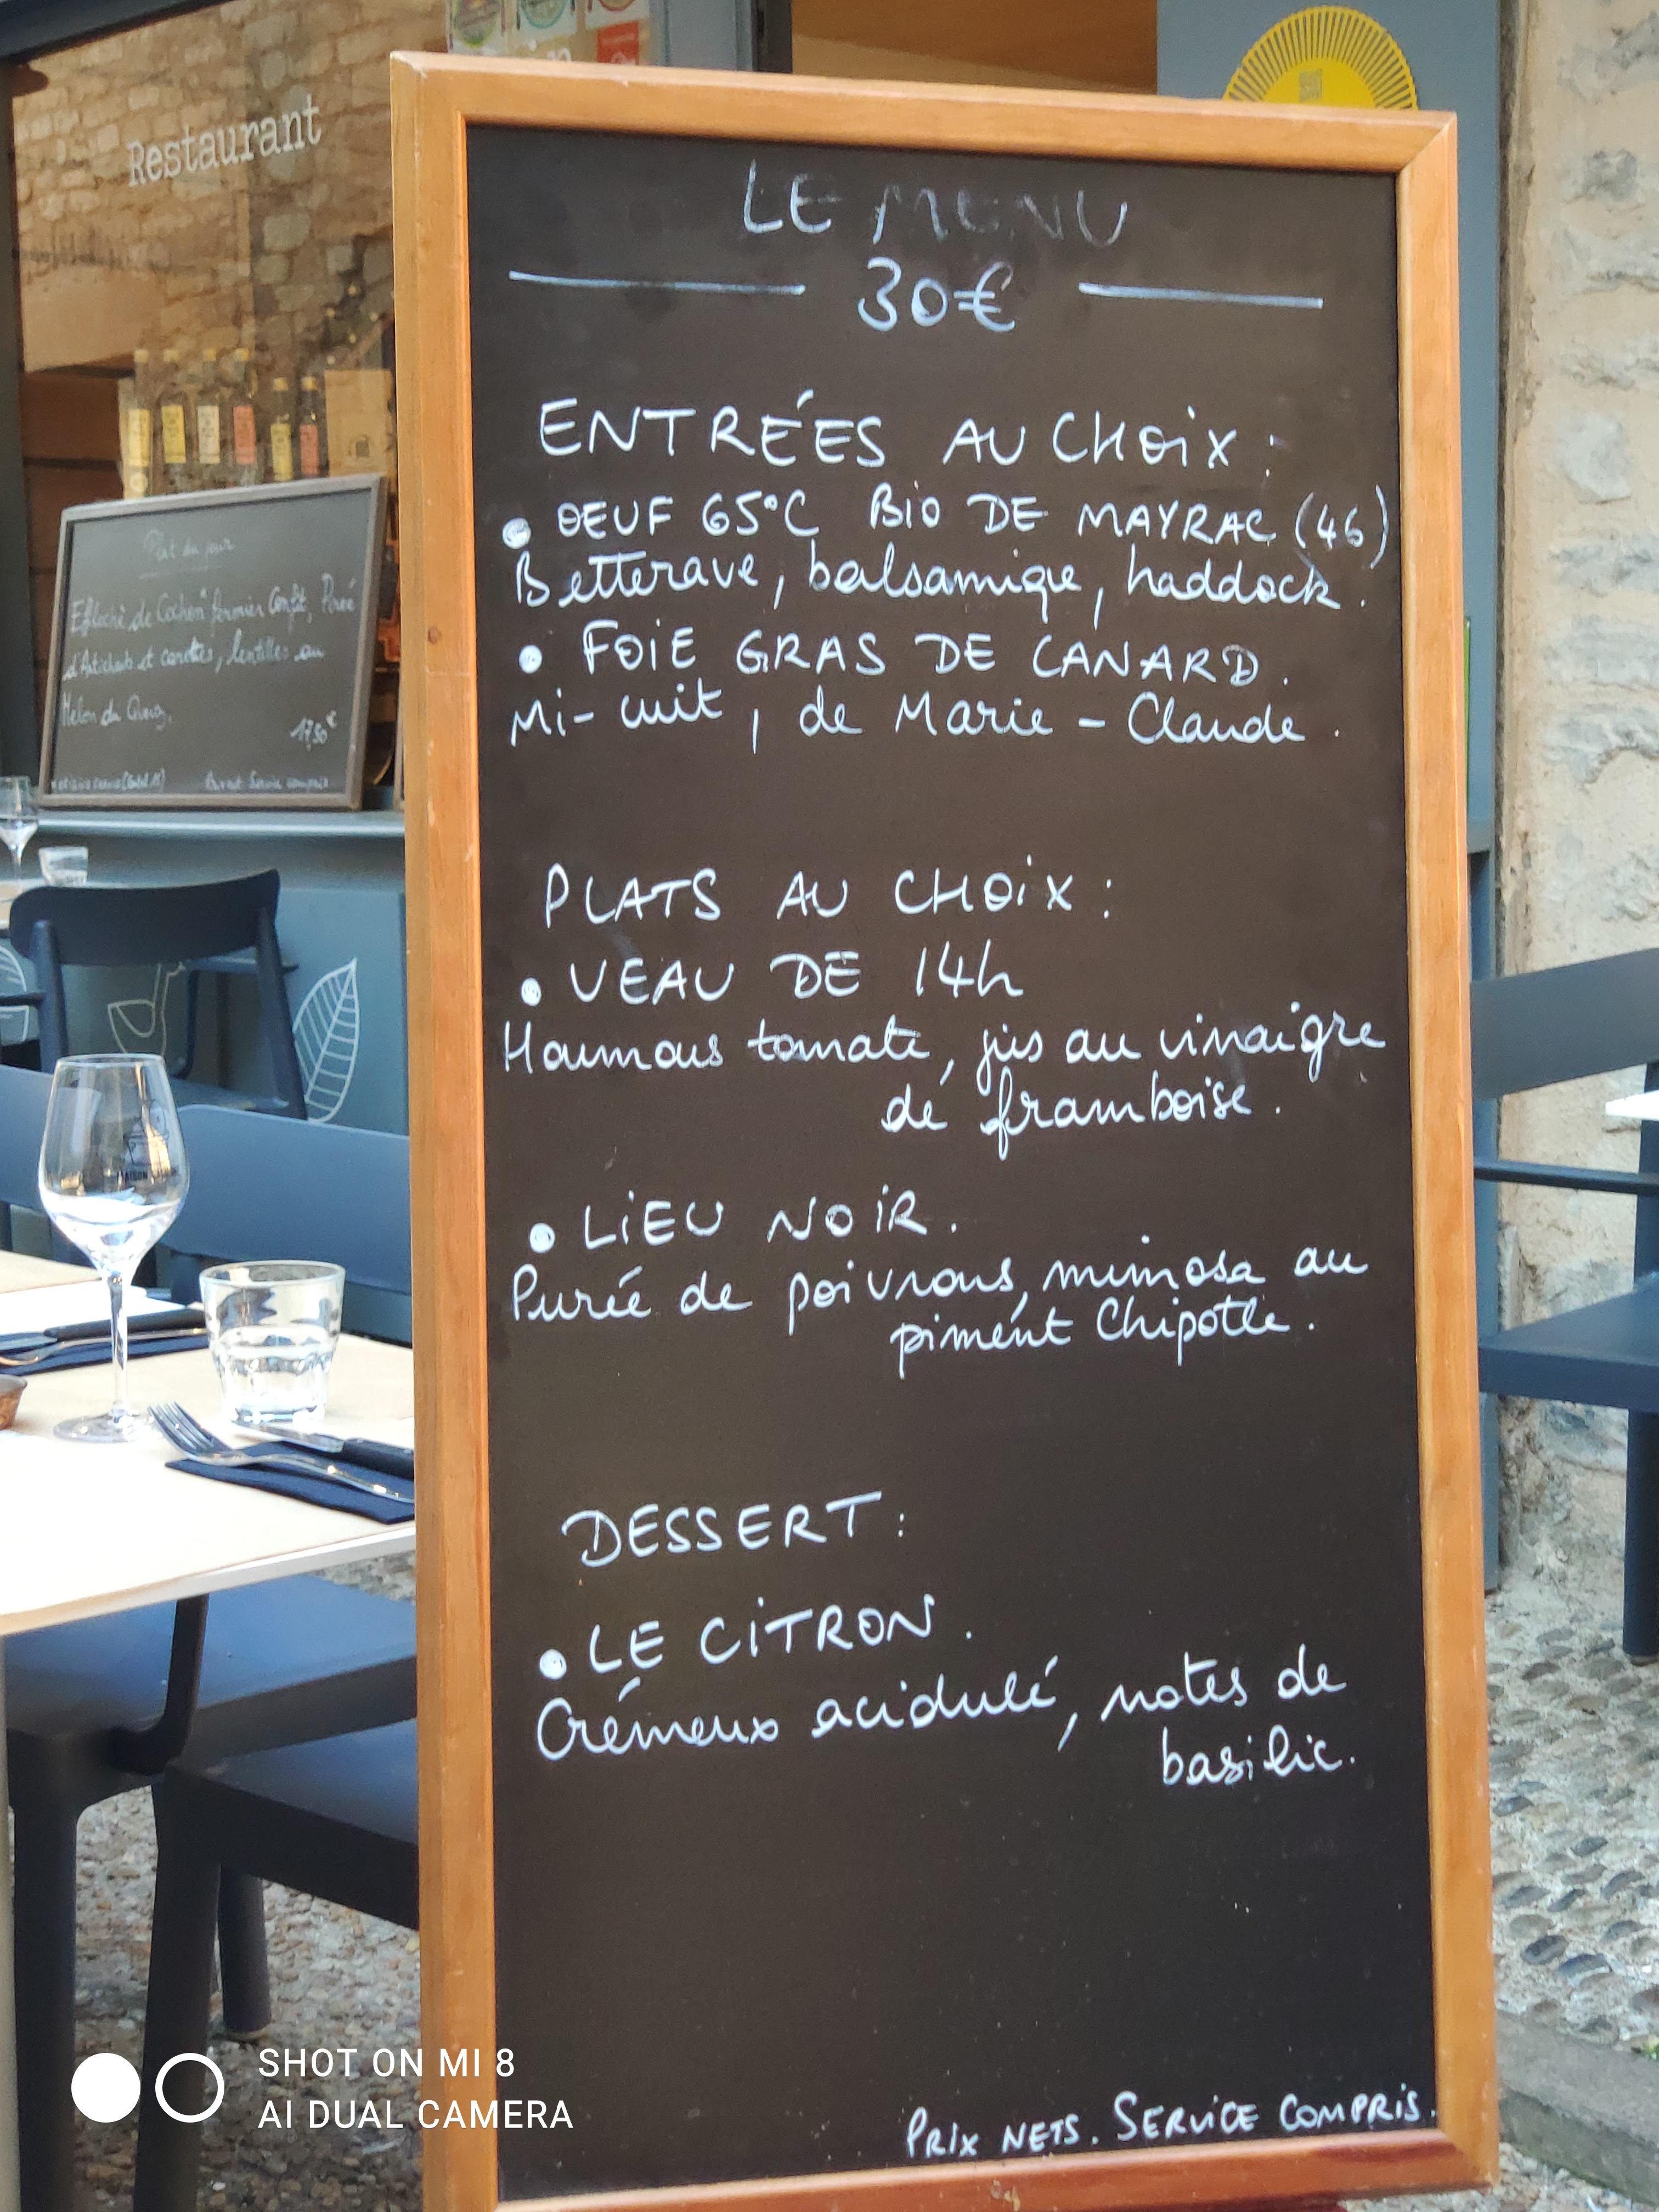 Restaurant
LE MENU
30€
ENTRÉES AU CHOIX :
• OEUF 65°C BIO DE MAYRAC (46)
Betterave, balsamique, haddock.
• FOIE GRAS DE CANARD.
Mi-cuit, de Marie-Claude.
PLATS AU CHOIX :
• VEAU DE 14h
Houmous tomate, jus au vinaigre
de framboise.
• LIEU NOIR.
Purée de poivrons, mimosa au
piment Chipotle.
DESSERT :
• LE CITRON.
Crémeux acidulé, notes de
basilic.
PRIX NETS. SERVICE COMPRIS.
Plat du jour
Effiloché de Cochon fermier Confit, Purée
d'Artichauts et carottes, lentilles au
Melon du Quercy.
17,50€
Service compris
SHOT ON MI 8
AI DUAL CAMERA